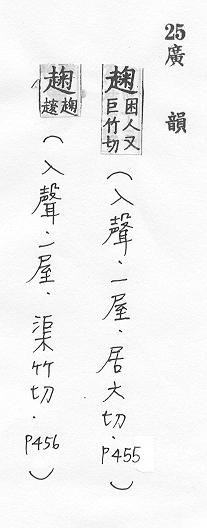 25 廣韻
趜 困人又巨竹切（入聲．一屋．居六切．P455）
趜 趜趢（入聲．一屋．渠竹切．P456）